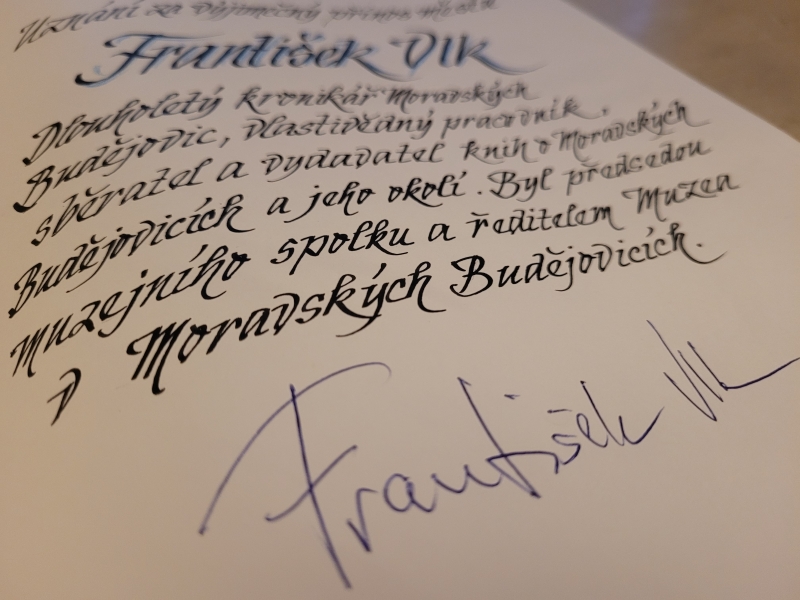 Uznání za výjimečný přínos městu
František Vlk
Dlouholetý kronikář Moravských
Budějovic, vlastivědný pracovník,
sběratel a vydavatel knih o Moravských
Budějovicích a jeho okolí. Byl předsedou
muzejního spolku a ředitelem Muzea
v Moravských Budějovicích.
František Vlk